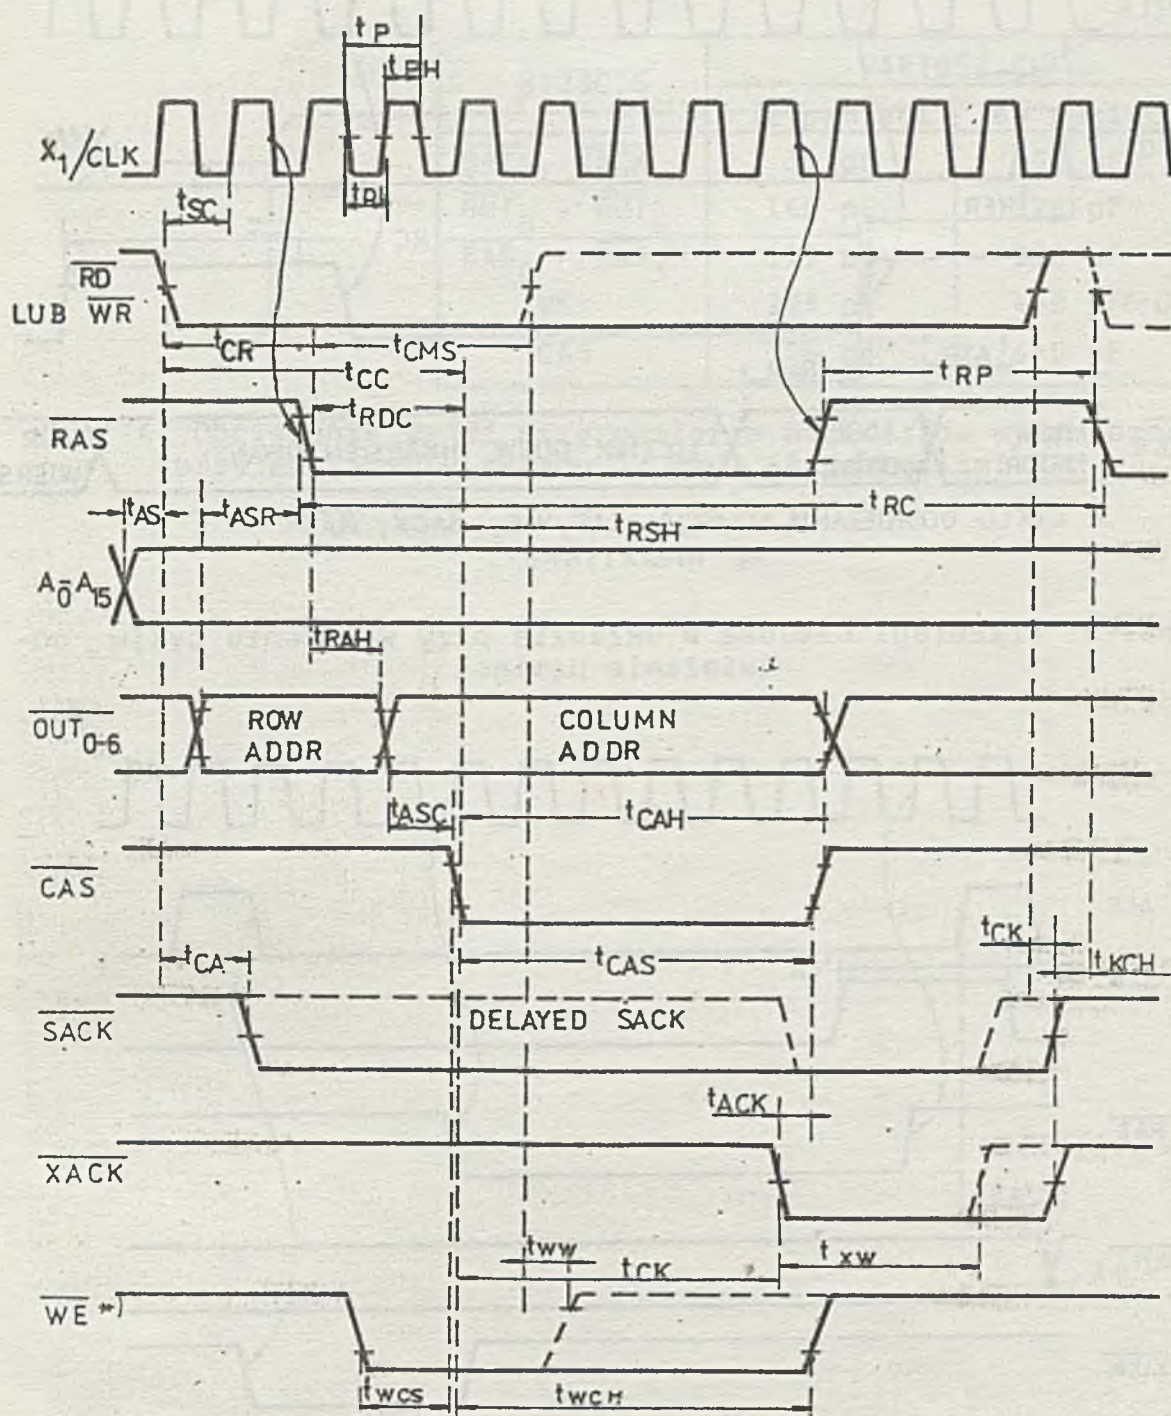 tP
tPH
X1/CLK
tSC
tPL
RD
LUB WR
tCR
tCMS
tCC
tRP
tRDC
RAS
tAS
tASR
tRC
tRSH
A0-A15
tRAH
OUT0-6
ROW ADDR
COLUMN ADDR
tASC
tCAH
CAS
tCK
tKCH
tCA
tCAS
SACK
DELAYED SACK
tACK
XACK
tWW
tCK
tXW
WE *)
tWCS
tWCH